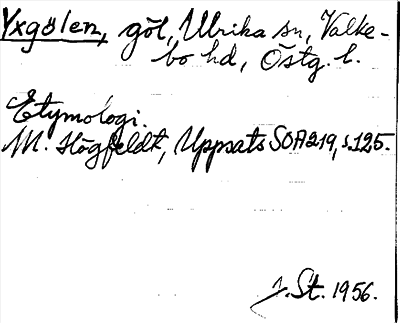 Yxgölen, göl, Ulrika sn, Valke-
bo hd, Östg. l.
Etymologi.
M. Högfeldt, Uppsats SOA219, s.125.
J.St. 1956.